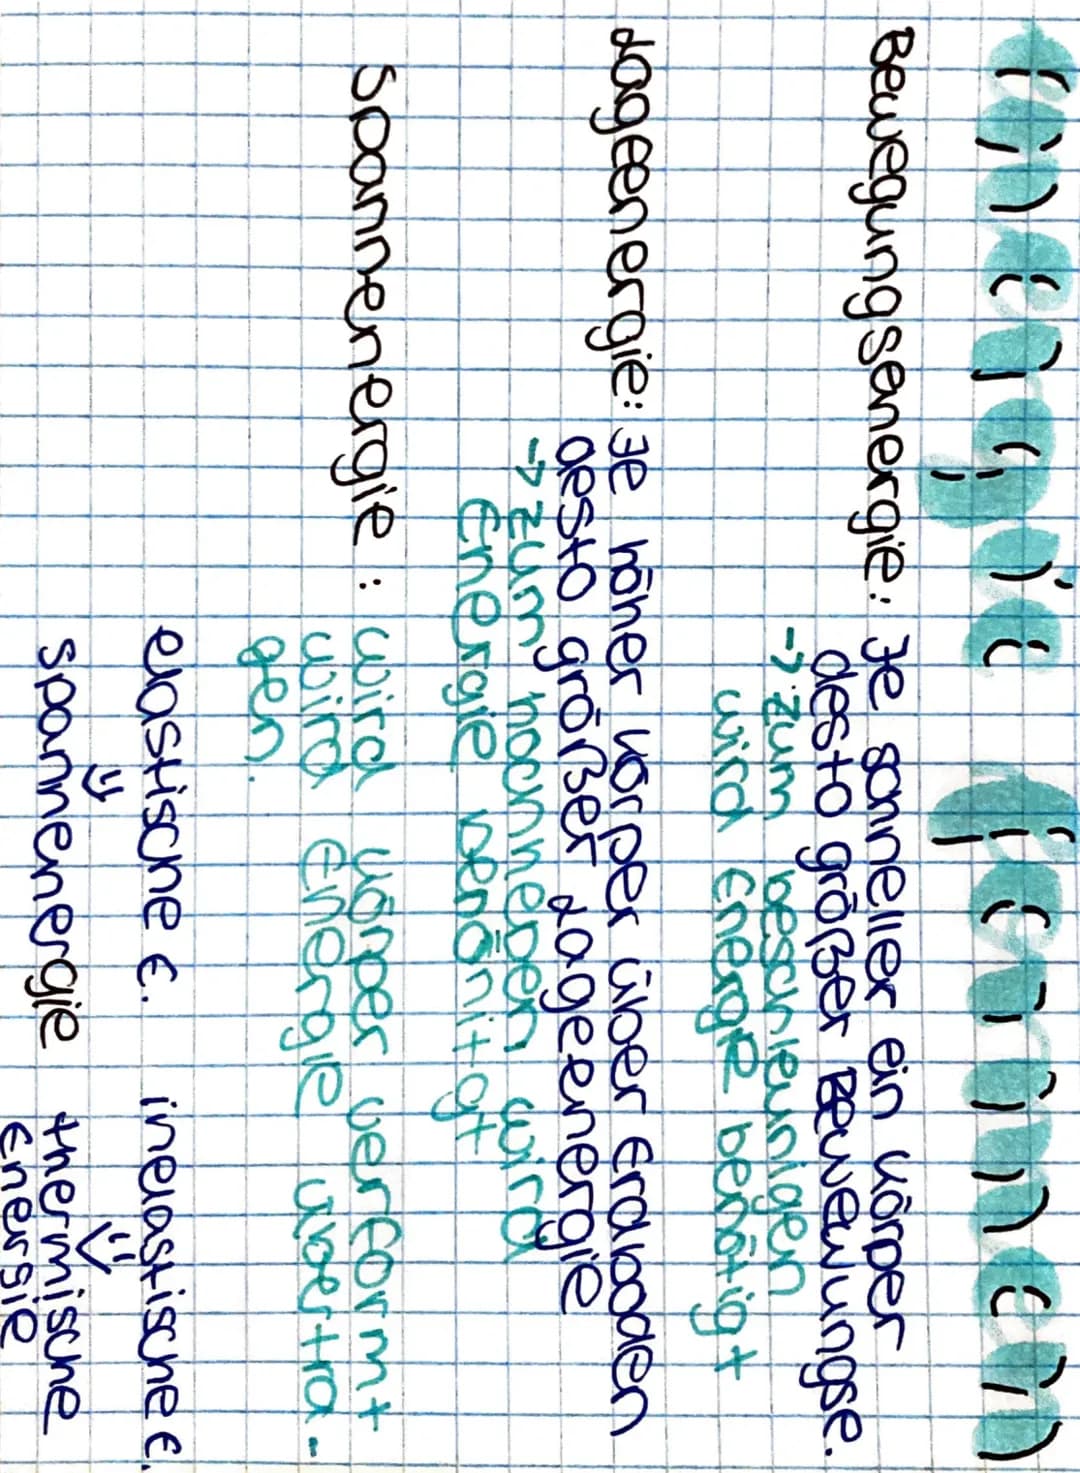 Energieformen
Bewegungsenergie: Je schneller ein Körper
desto größer Bewewungse.
→ zum beschleunigen
wird Energie benötigt
Lageenergie: Je höher Körper über Erdboden
desto größer Lageenergie
→ zum hochheben wird
Energie benönitgt
Spannenergie: wird Körper verformt
wird Energie übertra-
gen.
elastische E. inelastische E.
Spannenergie thermische
Energie